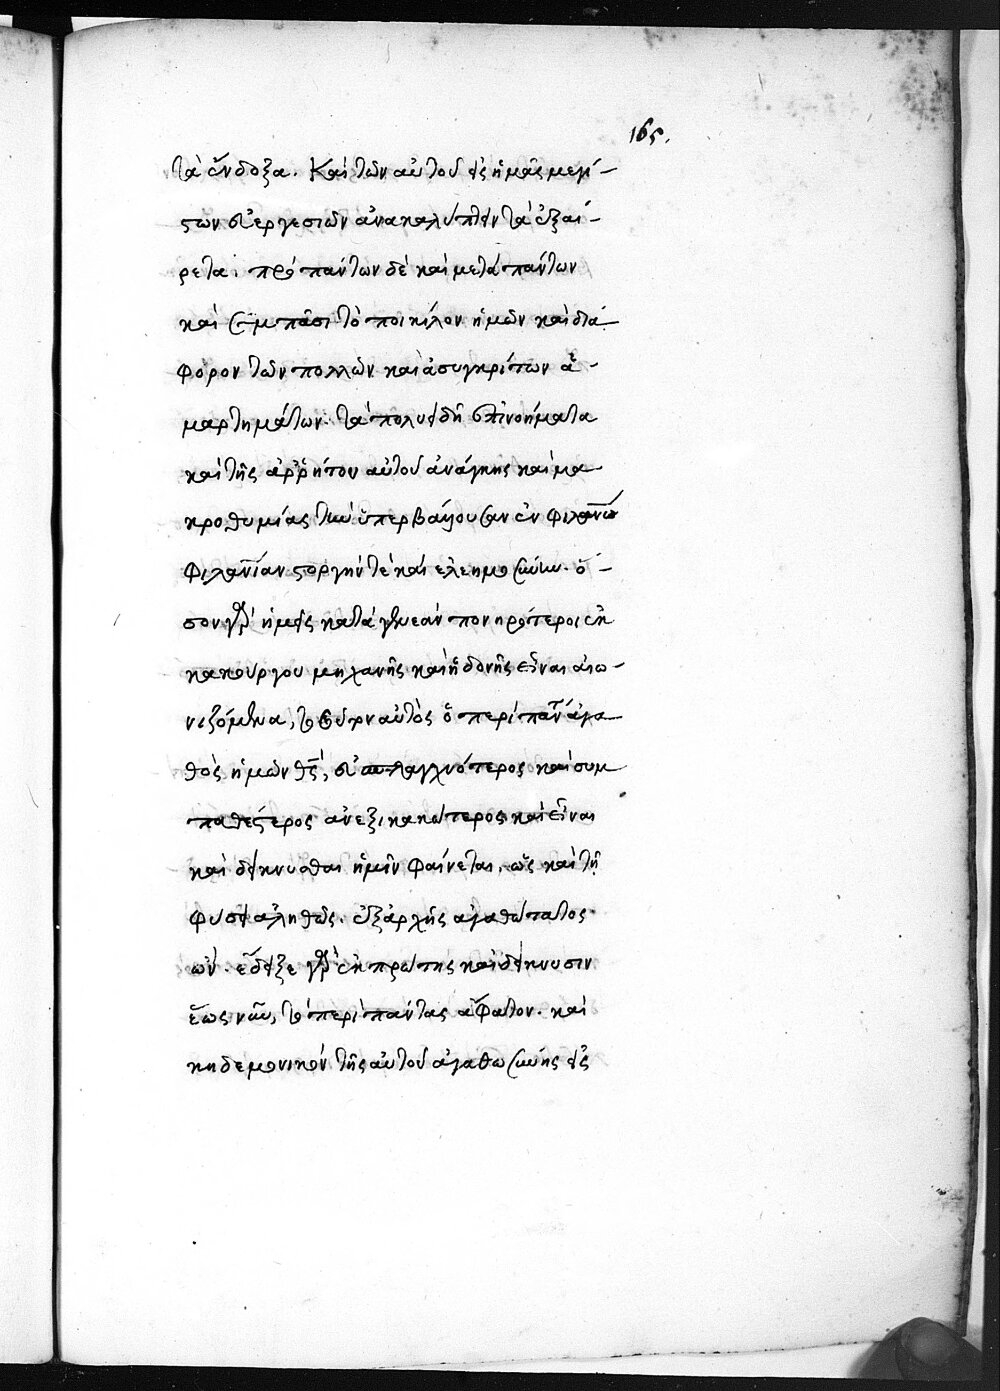 165.
τὰ ἔνδοξα. Καὶ τῶν αὐτοῦ εἰς ἡμᾶς μεγί-
στων εὐεργεσιῶν ἀνακαλύπτειν τὰ ἐξαί-
ρετα· πρὸ πάντων δὲ καὶ μετὰ πάντων
καὶ σὺμ πᾶσι τὸ ποικίλον ἡμῶν καὶ διά-
φορον τῶν πολλῶν καὶ ἀσυγκρίτων ἁ-
μαρτημάτων. τὰ πολυειδῆ ἐπινοήματα
καὶ τῆς ἀρρήτου αὐτοῦ καὶ μα
κροθυμίας τὴν ὑπερβάλλουσαν ἐν
φιλανίαν στοργήν τὲ καὶ ἐλεημοσύνην. ὅ-
σον γὰρ ἡμεῖς κατὰ γενεὰν πονηρότεροι ἐκ
κακούργου μηχανῆς καὶ ἡδονῆς εἶναι
αὐτὸς ὁ περὶ πάντα ἀγα
θὸς ἡμῶν θς, εὐσπλαγχνότερος καὶ συμ
παθέστερος ἀνεξικακώτερος καὶ εἶναι
καὶ δείκνυσθαι ἡμῖν φαίνεται. ὡς καὶ τῇ
φύσει ἀληθῶς. ἐξ ἀρχῆς ἀγαθώτατος
ὤν. ἔδειξε γὰρ ἐκ πρώτης καὶ δείκνυσιν
ἕως νῦν, τὸ περὶ πάντας ἄφατον. καὶ
κηδεμονικόν τῆς αὐτοῦ ἀγαθωσύνης εἰς